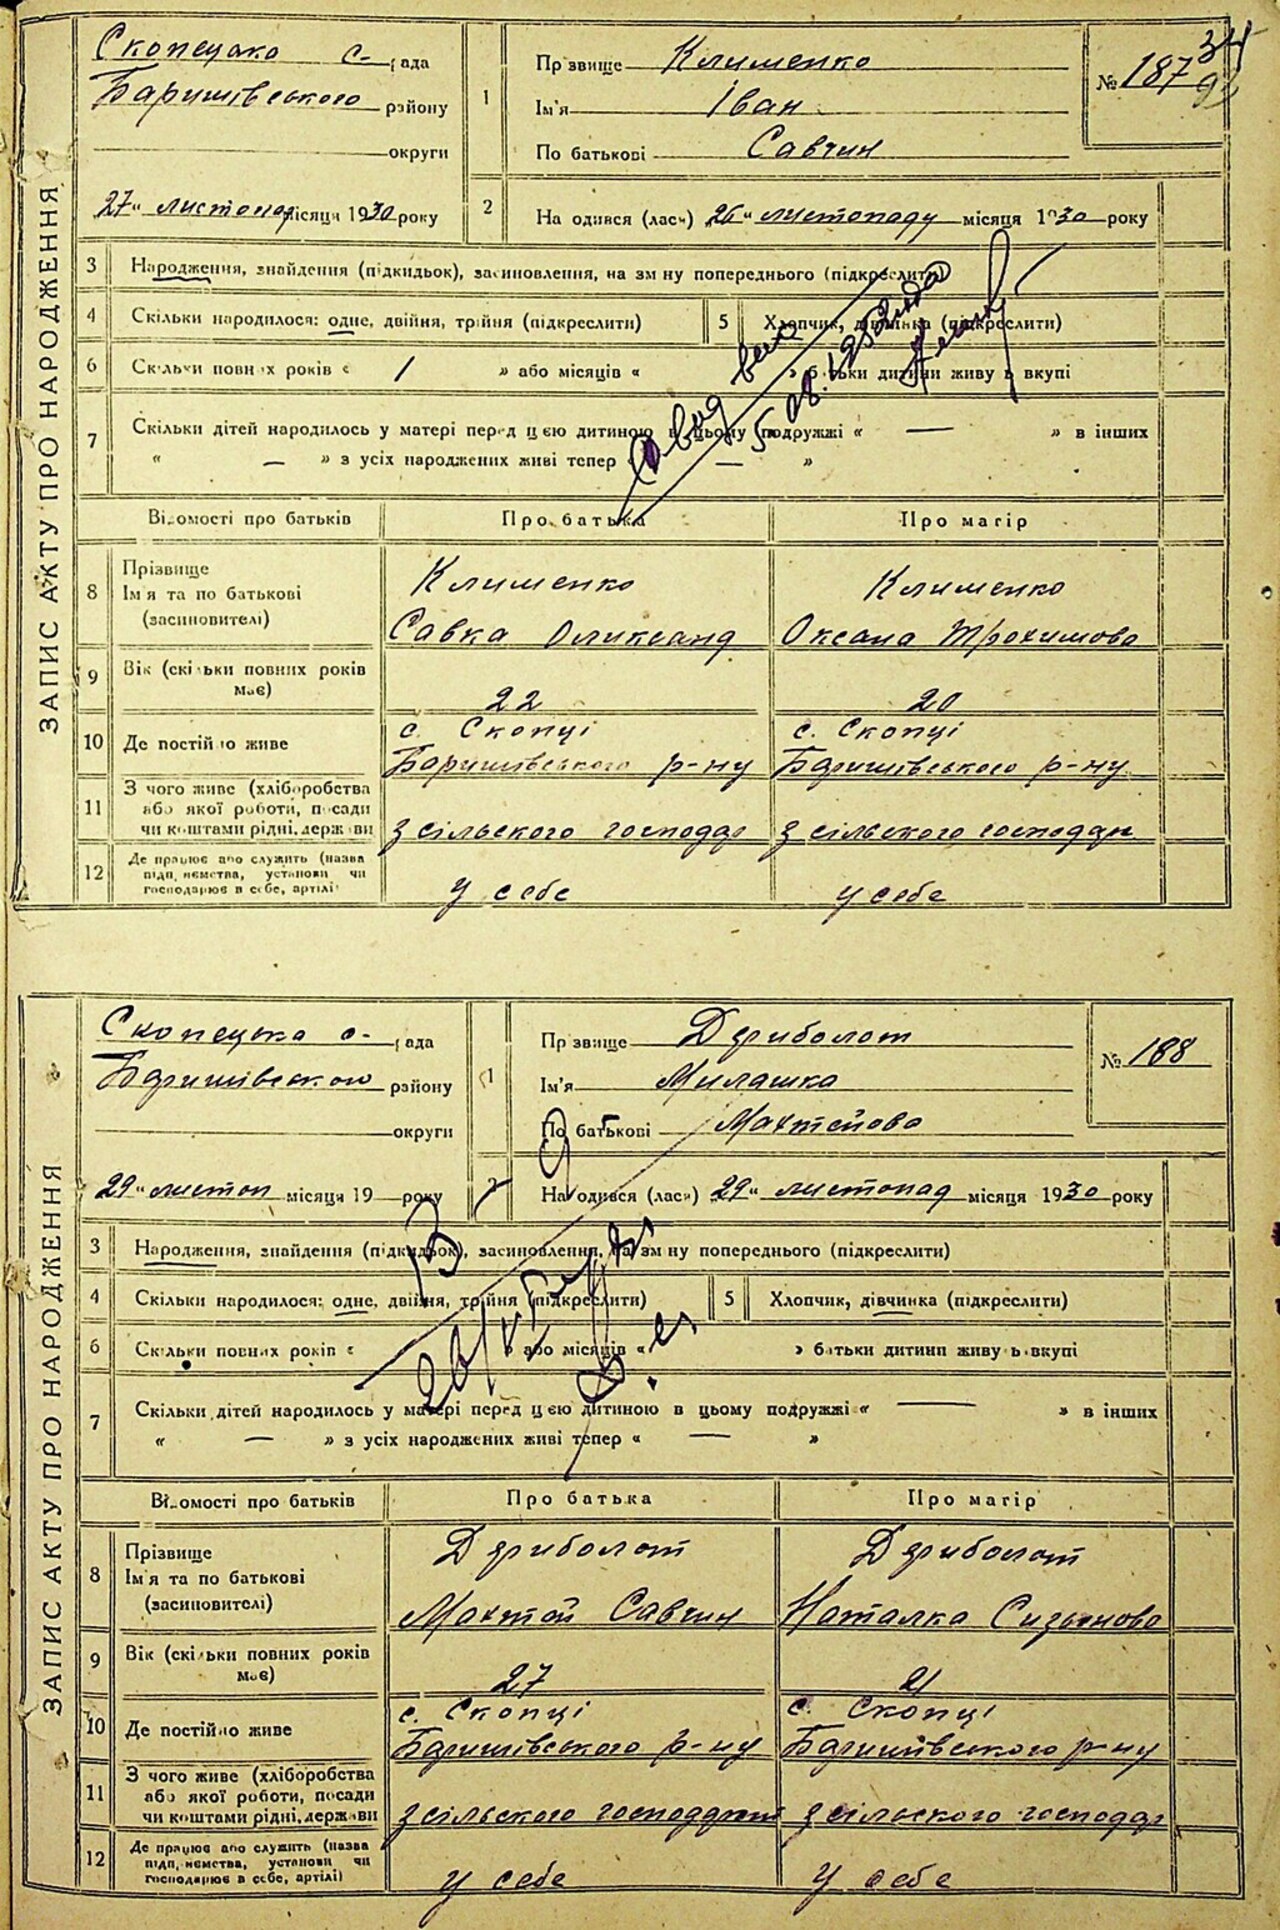 ЗАПИС АКТУ ПРО НАРОДЖЕННЯ
Скопецька с- рада
Баришівського району
округи
27 " листопад місяця 1930 року
1
Прізвище Клименко
Ім'я Іван
По батькові Савчин
№ 187
34
2
Народився (лась) 26 " листопаду місяця 1930 року
3 Народження, знайдення (підкидьок), засиновлення, на зміну попереднього (підкреслити)
4 Скільки народилося: одне, двійня, трійня (підкреслити)
5 Хлопчик, дівчинка (підкреслити)
6 Скільки повних років « 1 » або місяців « » батьки дитини живу в вкупі
7 Скільки дітей народилось у матері перед цією дитиною в цьому подружжі « — » в інших
« — » з усіх народжених живі тепер « — »
Відомості про батьків Про батька Про матір
8 Прізвище
Ім'я та по батькові
(засиновителі)
Клименко
Савка Оликсанд
Клименко
Оксана Трохимова
9 Вік (скільки повних років має) 22 20
10 Де постійно живе
с. Скопці
Баришівського р-ну
с. Скопці
Баришівського р-ну
11 З чого живе (хліборобства
або якої роботи, посади
чи коштами рідні, держави
з сільського господар
з сільського господар
12 Де працює або служить (назва
підприємства, установи чи
господарює в себе, артілі)
у себе у себе
ЗАПИС АКТУ ПРО НАРОДЖЕННЯ
Скопецька с- рада
Баришівського району
округи
29 " листоп місяця 19 — року
1
Прізвище Дзриболот
Ім'я Милашка
По батькові Махтейова
№ 188
2
Народився (лась) 29 " листопад місяця 1930 року
3 Народження, знайдення (підкидьок), засиновлення, на зміну попереднього (підкреслити)
4 Скільки народилося: одне, двійня, трійня (підкреслити)
5 Хлопчик, дівчинка (підкреслити)
6 Скільки повних років « » або місяців « » батьки дитини живу вкупі
7 Скільки дітей народилось у матері перед цією дитиною в цьому подружжі « — » в інших
« — » з усіх народжених живі тепер « — »
Відомості про батьків Про батька Про матір
8 Прізвище
Ім'я та по батькові
(засиновителі)
Дзриболот
Махтей Савчин
Дзриболот
Наталка
9 Вік (скільки повних років має) 27 21
10 Де постійно живе
с. Скопці
Баришівського р-ну
с. Скопці
Баришівського р-ну
11 З чого живе (хліборобства
або якої роботи, посади
чи коштами рідні, держави
з сільського господ
з сільського господар
12 Де працює або служить (назва
підприємства, установи чи
господарює в себе, артілі)
у себе у себе